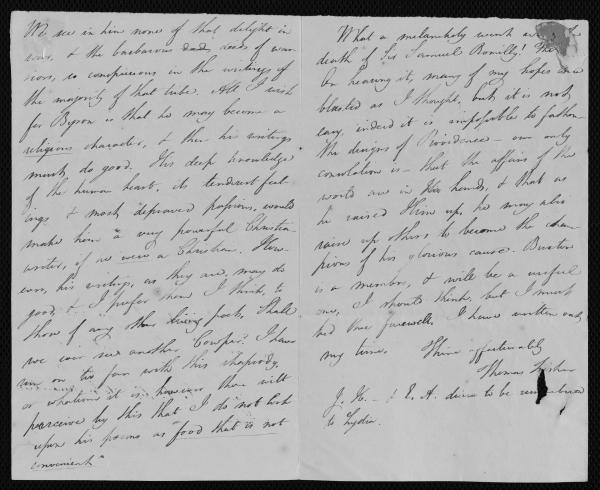 We see in him none of that delight in
wars, & the barbarous deeds of war-
riors, so conspicuous in the writings of
the majority of that tribe. All I wish
for Byron is that he may become a
religious character, & then his writings
must do good. His deep knowledge
of the human heart, its tenderest feel-
ings & most depraved passions, would
make him a very powerful Christian
writer, if he were a Christian. How-
ever, his writings, as they are, may do
good, & I prefer them I think, to
those of any other living poet. Shall
we ever see another Cowper? I have
run on too far with this rhapsody,
or whatever it is, however thou wilt
perceive by this that I do not look
upon his poems as "food that is not
convenient"
What a melancholy event
death of Sir Samuel Romilly!
On hearing it, many of my hopes were
blasted as I thought, but it is not
easy, indeed it is impossible to fathom
the designs of Providence – our only
consolation is – that the affairs of the
world are in His hands, & that as
he raised Him up, he may also
raise up others to become the cham-
pions of his glorious cause. Buxton
is a member, & will be a useful
one, I should think, but I must
bid thee farewell. I have written out
my time. Thine affectionately
Thomas Fisher
J. H. – & E. A. desire to be remembered
to Lydia.